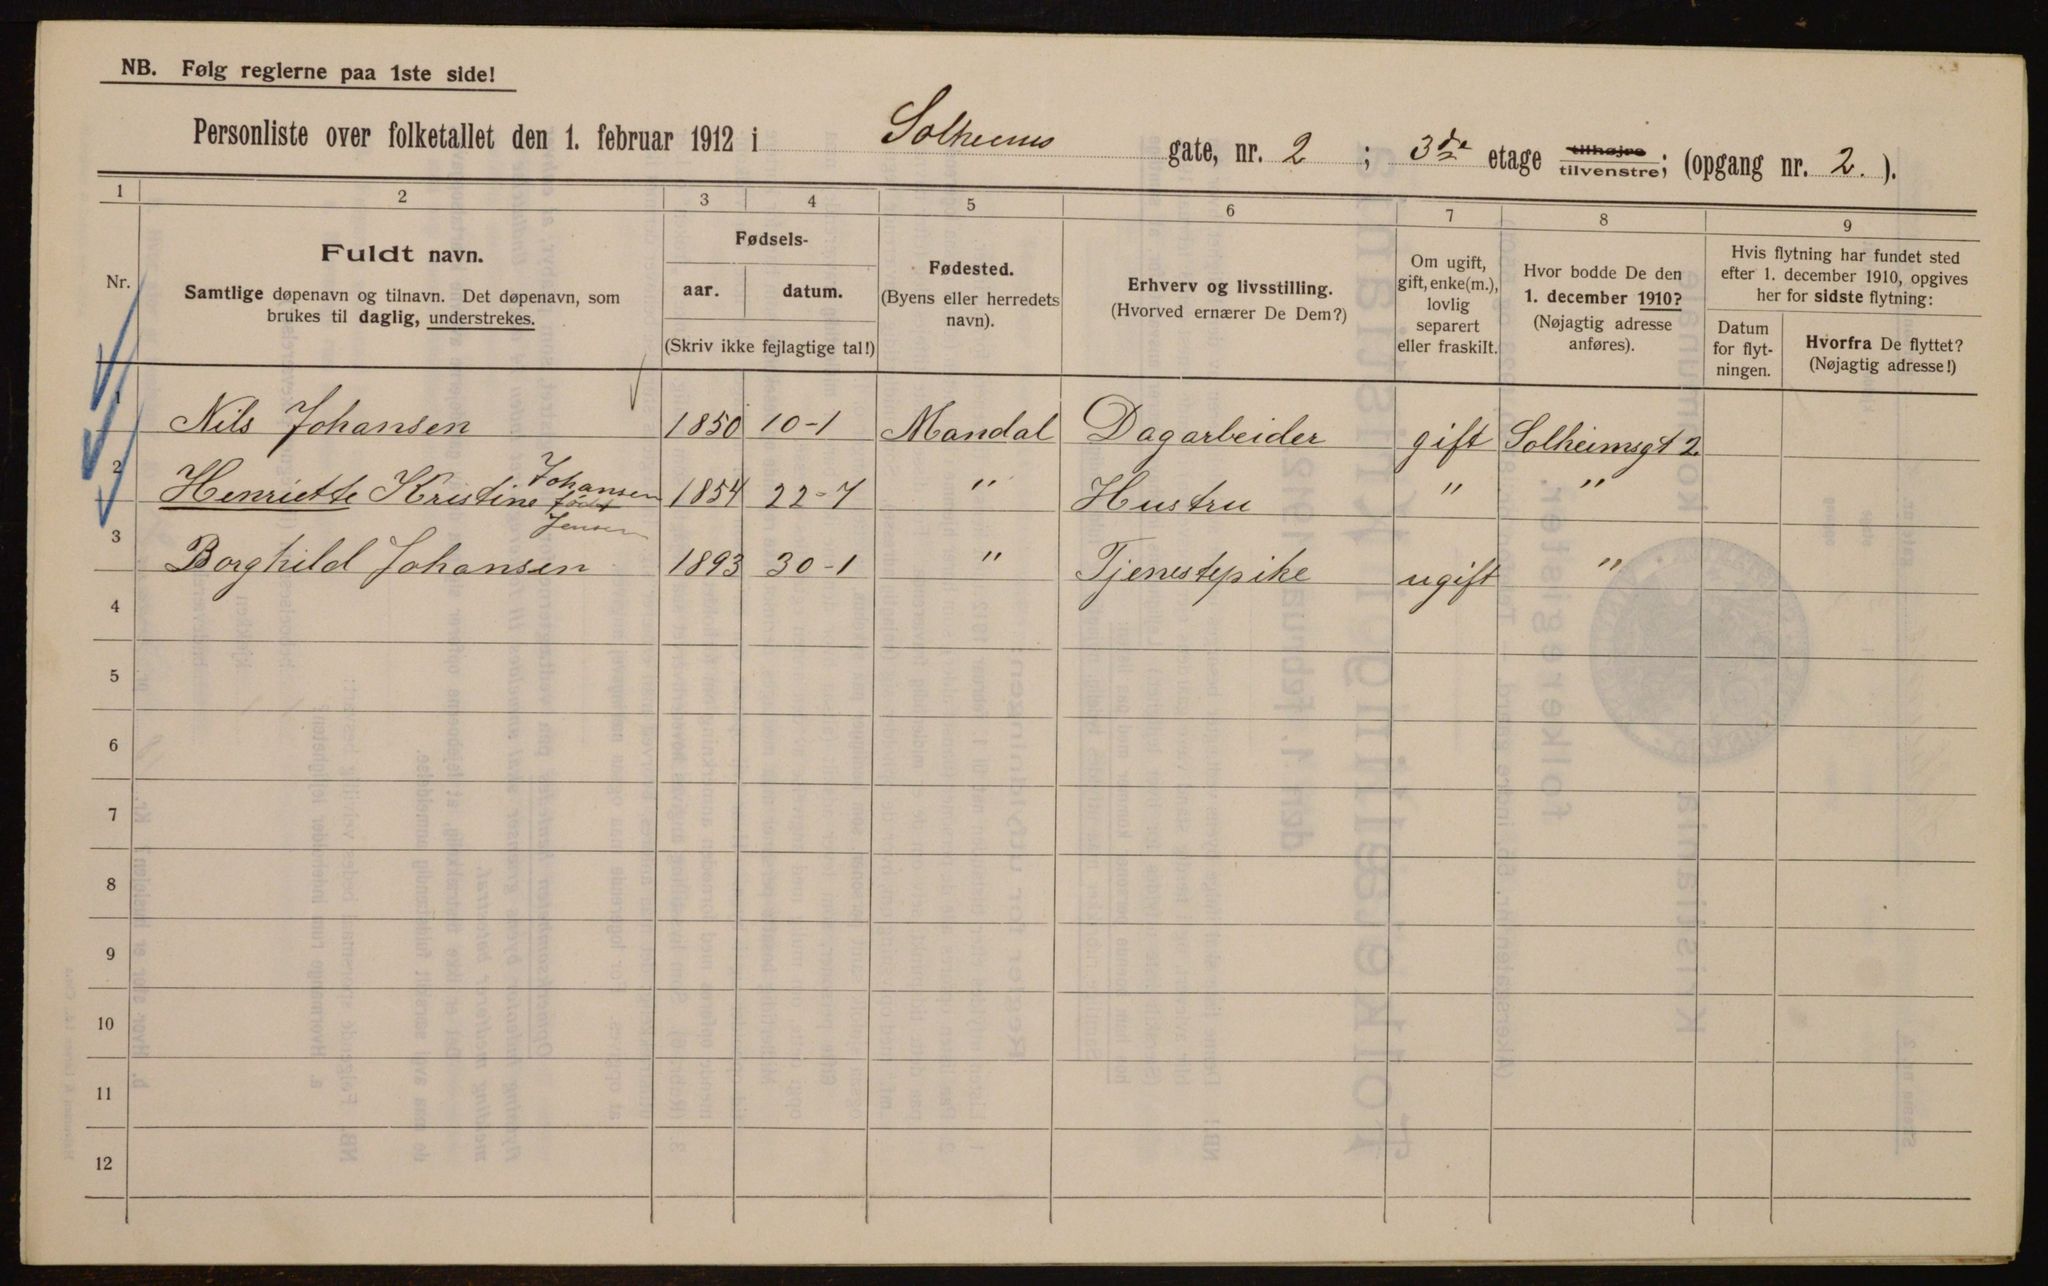 NB. Følg reglerne paa 1ste side!
Personliste over folketallet den 1. februar 1912 i Solheims gate, nr. 2 ; 3de etage tilhøjre tilvenstre; (opgang nr. 2. ).
1 2 3 4 5 6 7 8 9
Nr.
Fuldt navn.
Samtlige døpenavn og tilnavn. Det døpenavn, som
brukes til daglig, understrekes.
Fødsels-
aar. datum.
(Skriv ikke fejlagtige tal!)
Fødested.
(Byens eller herredets
navn).
Erhverv og livsstilling.
(Hvorved ernærer De Dem?)
Om ugift,
gift, enke(m.),
lovlig
separert
eller fraskilt.
Hvor bodde De den
1. december 1910?
(Nøjagtig adresse
anføres).
Hvis flytning har fundet sted
efter 1. december 1910, opgives
her for sidste flytning:
Datum
for flyt-
ningen.
Hvorfra De flyttet?
(Nøjagtig adresse!)
1 Nils Johansen 1850 10-1 Mandal Dagarbeider gift Solheimsgt 2
2 Henriette Kristine Johansen født Jensen 1854 22-7 " Hustru " "
3 Borghild Johansen 1893 30-1 " Tjenestepike ugift "
4
5
6
7
8
9
10
11
12